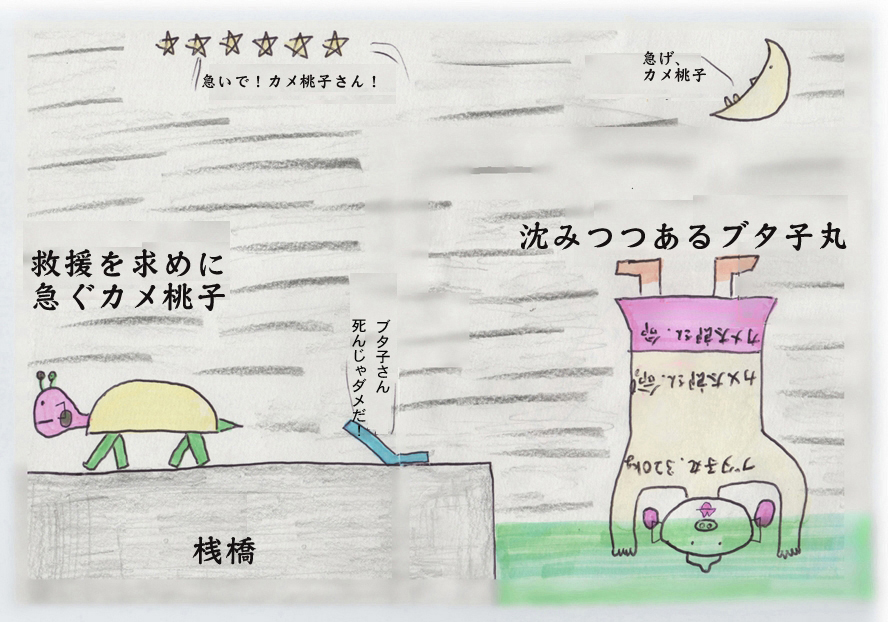 急いで！カメ桃子さん！
急げ、
カメ桃子
沈みつつあるブタ子丸
救援を求めに
急ぐカメ桃子
ブタ子さん
死んじゃダメだ！
カメ太郎さん.命
カメ太郎さん.命。
ブタ子丸.320kg
桟橋